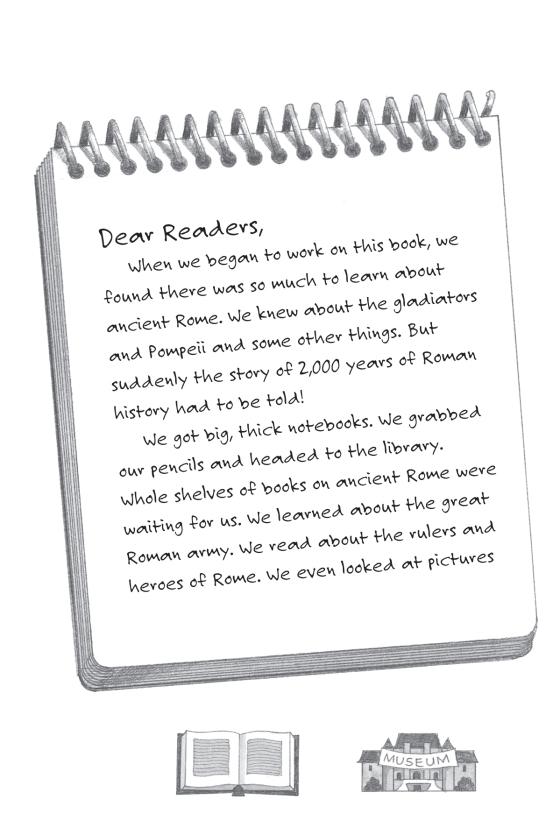 Dear Readers,
When we began to work on this book, we
found there was so much to learn about
ancient Rome. We knew about the gladiators
and Pompeii and some other things. But
suddenly the story of 2,000 years of Roman
history had to be told!
We got big, thick notebooks. We grabbed
our pencils and headed to the library.
Whole shelves of books on ancient Rome were
waiting for us. We learned about the great
Roman army. We read about the rulers and
heroes of Rome. We even looked at pictures
MUSEUM